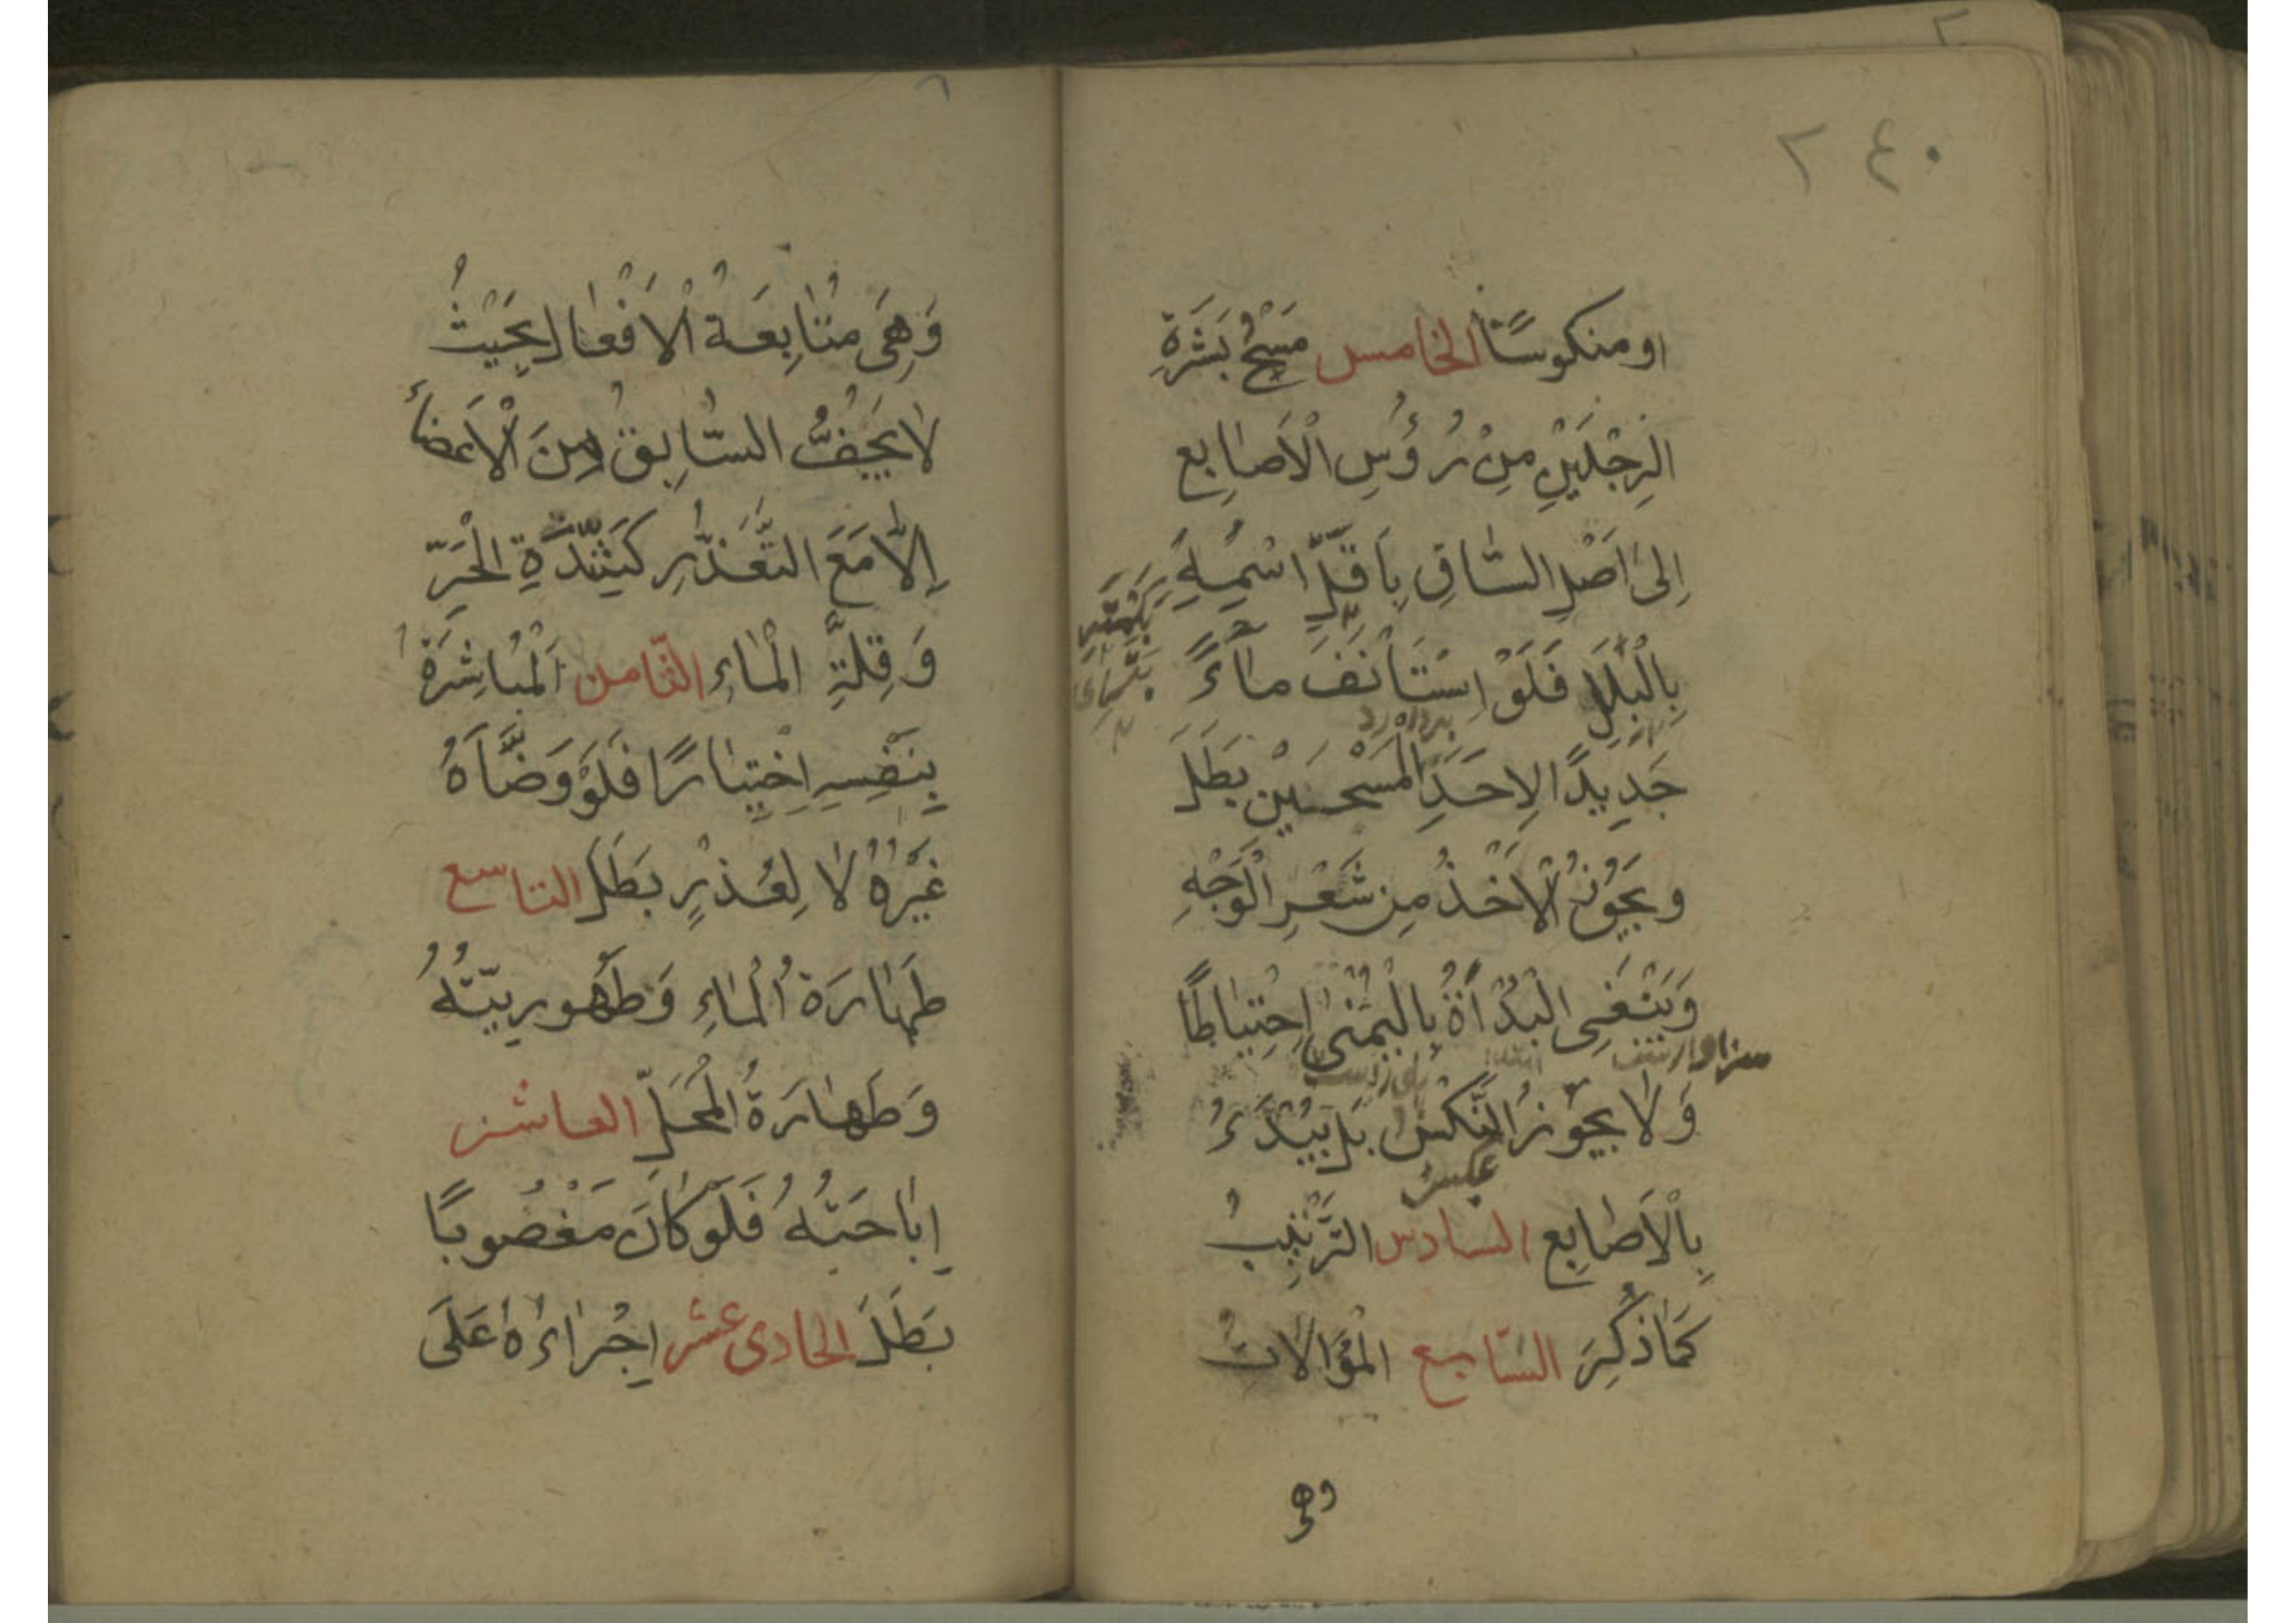 ٢٤٠
او منكوسًا الخامس مَسْحُ بَشَرَةِ
الرِّجْلَيْنِ مِنْ رُؤُسِ الْاَصَابِع
اِلىٰ اَصْلِ السّٰاقِ بِاَقَلِّ اسْمِهِ
بِالْبَلَلِ فَلَوْ اِسْتَأْنَفَ مٰاءً
جَدِيدًا لِاَحَدِ الْمَسْحَيْنِ بَطَلَ
وَيَجُوزُ الْاَخْذُ مِنْ شَعْرِ الْوَجْهِ
وَيَنْبَغِى الْبُدْأَةُ بِالْيُمْنىٰ اِحْتِيٰاطًا
سزاوار
وَلٰا يَجُوزُ النَّكْسُ بَلْ يَبْدَءُ
عكس
بِالْاَصٰابِعِ السادس التَّرْتِيبُ
كَمٰا ذُكِرَ السّابع الْمُوٰالاتُ
وهى
وَهِىَ مُتٰابِعَةُ الْاَفْعٰالِ بِحَيْثُ
لٰا يَجِفُّ السّٰابِقُ مِنَ الْاَعْضٰاءِ
اِلّٰا مَعَ التَّعَذُّرِ كَشِدَّةِ الْحَرِّ
وَقِلَّةِ الْمٰاءِ الثّامن اَلْمُبٰاشَرَةُ
بِنَفْسِهِ اِخْتِيٰارًا فَلَوْ وَضَّأَهُ
غَيْرُهُ لٰا لِعُذْرٍ بَطَلَ التاسع
طَهٰارَةُ الْمٰاءِ وَطَهُورِيَّتُهُ
وَطَهٰارَةُ الْمَحَلِّ العاشر
اِبٰاحَتُهُ فَلَوْ كٰانَ مَغْصُوبًا
بَطَلَ الحادى عشر اِجْرٰاءُهُ عَلىَ